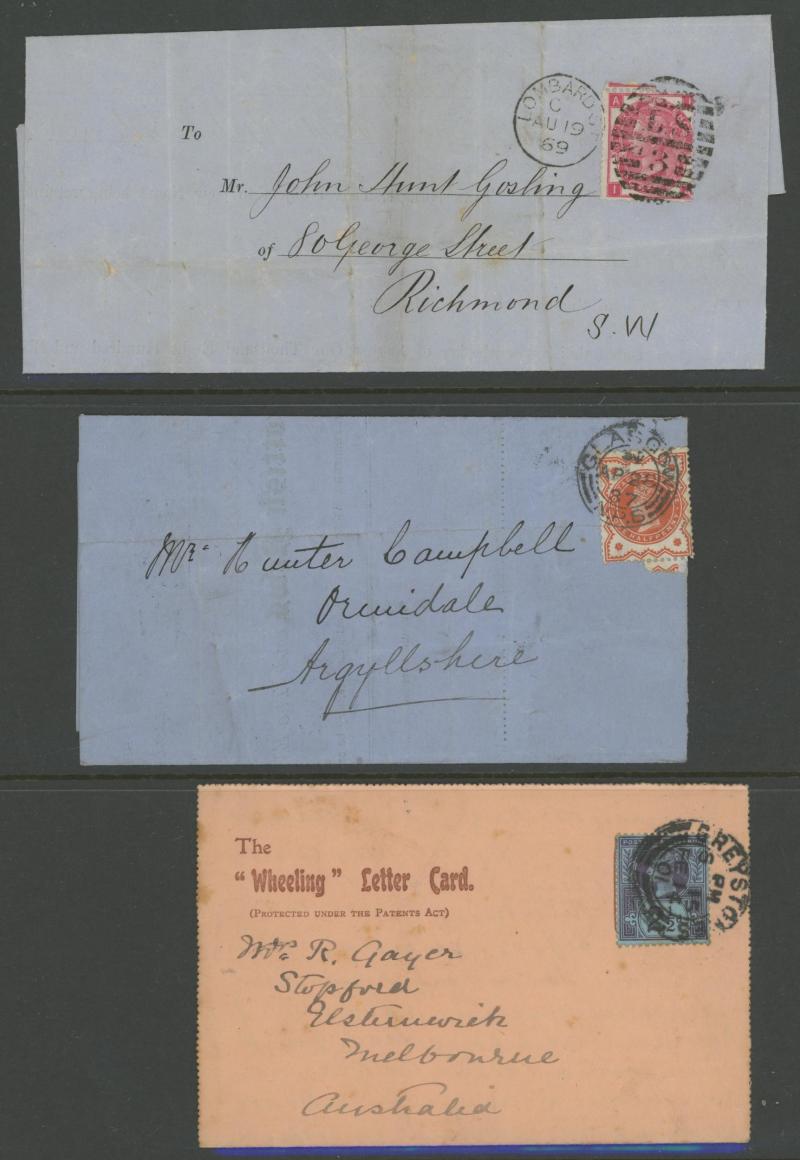 LOMBARD ST
C
AU 19
69
To
Mr. John Hunt Gosling
of 80 George Street
Richmond
S.W
GLASGOW
AP
87
HALFPENNY
Mr. Hunter Campbell
Ormidale
Argyllshire
The
"Wheeling" Letter Card.
(PROTECTED UNDER THE PATENTS ACT)
GREYSTO
PM
Mrs R. Gayer
Stopford
Elsternwick
Melbourne
Australia